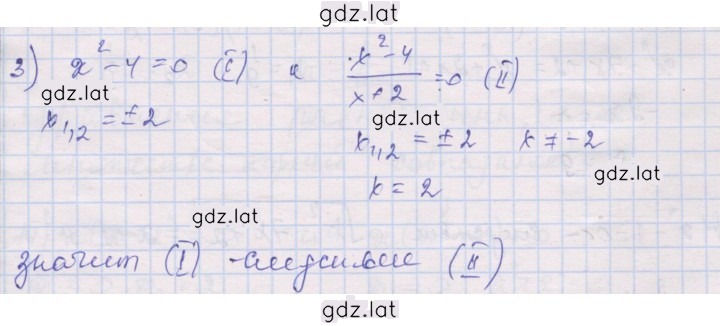 gdz.lat
3) x² - 4 = 0 (I) и (x² - 4)/(x + 2) = 0 (II)
gdz.lat
x₁,₂ = ± 2
gdz.lat
x₁,₂ = ± 2 x ≠ -2
gdz.lat
x = 2
gdz.lat
значит (I) - следствие (II)
gdz.lat